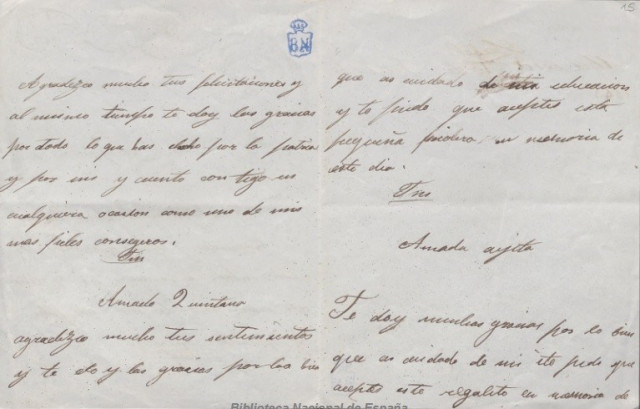 Agradezco mucho tus felicitaciones y
al mismo tiempo te doy las gracias
por todo lo que has echo por la patria
y por mi y cuento contigo en
cualquiera ocasion como uno de mis
mas fieles consegeros.
Amado Quintana
agradezco mucho tus sentimientos
y te do y las gracias por lo bien
que as cuidado de mi educacion
y te pido que aceptes esta
pequeña en memoria de
este dia.
Amada ayita
Te doy muchas gracias por lo bien
que as cuidado de mi y te pido que
aceptes este regalito en memoria de
BN
15
Biblioteca Nacional de España